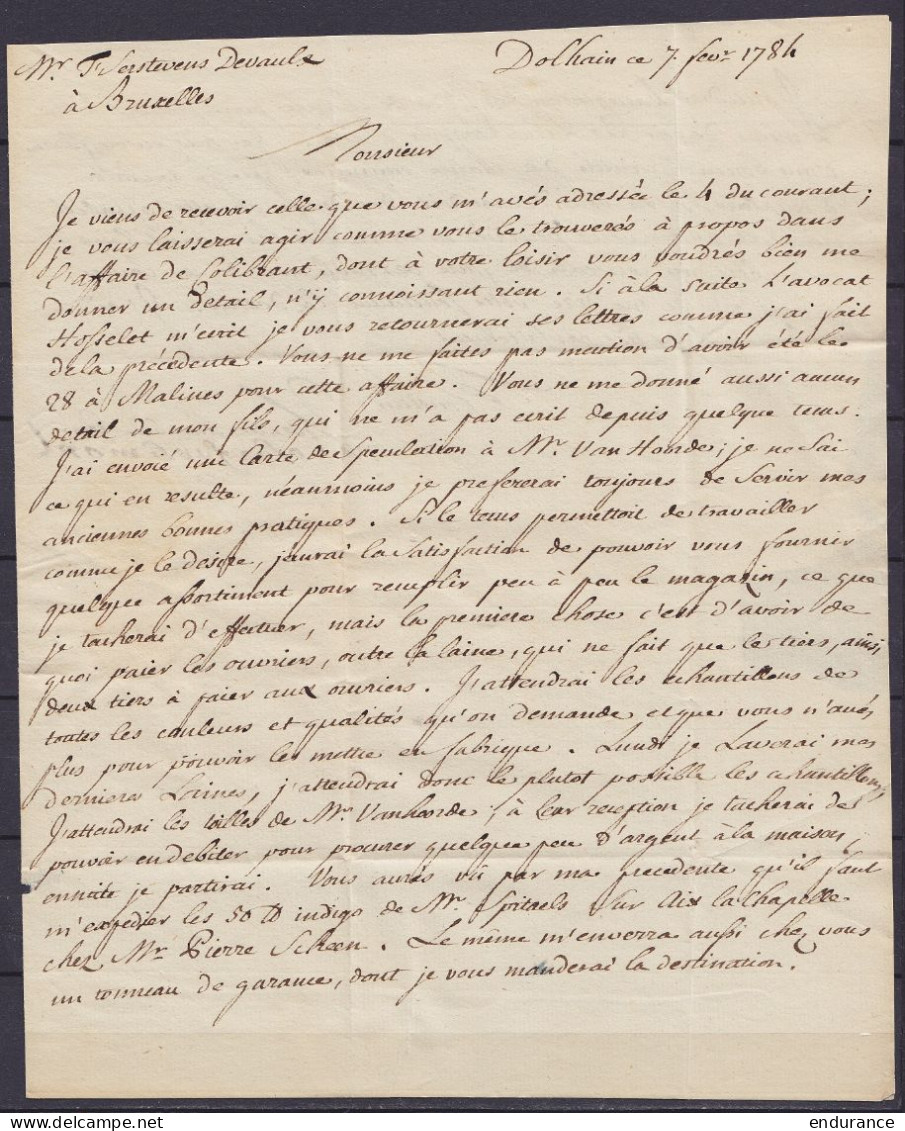 Mr. T'Serstevens Devaulx
Dolhain ce 7. fevr. 1784
à Bruxelles
Monsieur
Je viens de recevoir celle que vous m'avés adressée le 4 du courant;
je vous laisserai agir comme vous le trouverés à propos dans
l'affaire de Colibrant, dont à votre loisir vous voudrés bien me
donner un detail, n'ÿ connoissant rien. Si à la suite L'avocat
Hosselet m'ecrit je vous retournerai ses lettres comme j'ai fait
de la précédente. Vous ne me faites pas mention d'avoir été le
28 à Malines pour cette affaire. Vous ne me donné aussi aucun
detail de mon fils, qui ne m'a pas ecrit depuis quelque tems.
J'ai envoié une Carte de Speculation à Mr. Van Hoorde; je ne Sai
ce qui en resulte, néaumoins je prefererai toujours de Servir mes
anciennes bonnes pratiques. Si le tems permettoit de travailler
comme je le desire, j'eurai la Satisfaction de pouvoir vous fournir
quelque assortiment pour remplir peu à peu le magazin, ce que
je tacherai d'effectuer, mais la premiere chose c'est d'avoir de
quoi paier les ouvriers, outre la laine, qui ne fait que le tiers, ainsi
deux tiers à paier aux ouvriers. J'attendrai les echantillons de
toutes les couleurs et qualités qu'on demande et que vous n'avés
plus pour pouvoir les mettre en fabrique. Lundi je Laverai mes
dernieres Laines, j'attendrai donc le plutot possible les echantillons
J'attendrai les tailles de Mr. Vanhoorde, à leur reception je tacherai de
pouvoir en debiter pour procurer quelque peu d'argent à la maison,
ensuite je partirai. Vous aurés vû par ma precedente qu'il faut
m'expedier les 50 ℔ indigo de Mr. Spitaels sur Aix la Chapelle
chez Mr. Pierre Scheen. Le même m'enverra aussi chez vous
un tonneau de garance, dont je vous manderai la destination.
delcampe.net
endurance